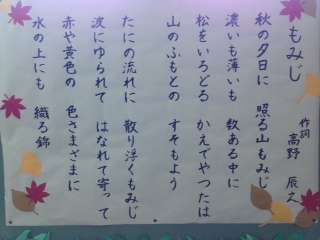 もみじ
作詞 高野 辰之
秋の夕日に 照る山もみじ
濃いも薄いも 数ある中に
松をいろどる かえでやつたは
山のふもとの すそもよう
たにの流れに 散り浮くもみじ
波にゆられて はなれて寄って
赤や黄色の 色さまざまに
水の上にも 織る錦